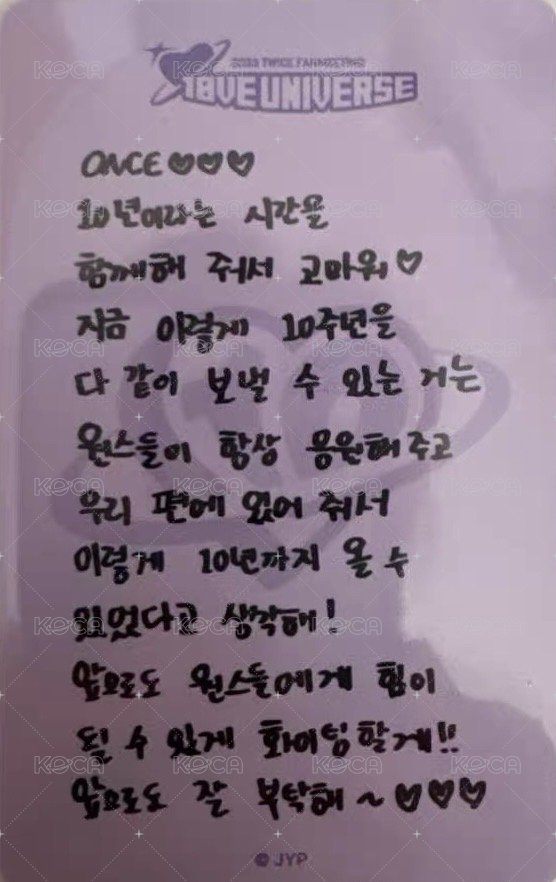 2025 TWICE FANMEETING
10VE UNIVERSE
ONCE♡♡♡
10년이라는 시간을
함께해 줘서 고마워♡
지금 이렇게 10주년을
다 같이 보낼 수 있는 거는
원스들이 항상 응원해주고
우리 편에 있어 줘서
이렇게 10년까지 올 수
있었다고 생각해!
앞으로도 원스들에게 힘이
될 수 있게 화이팅할게!!
앞으로도 잘 부탁해~♡♡♡
© JYP
KOCA